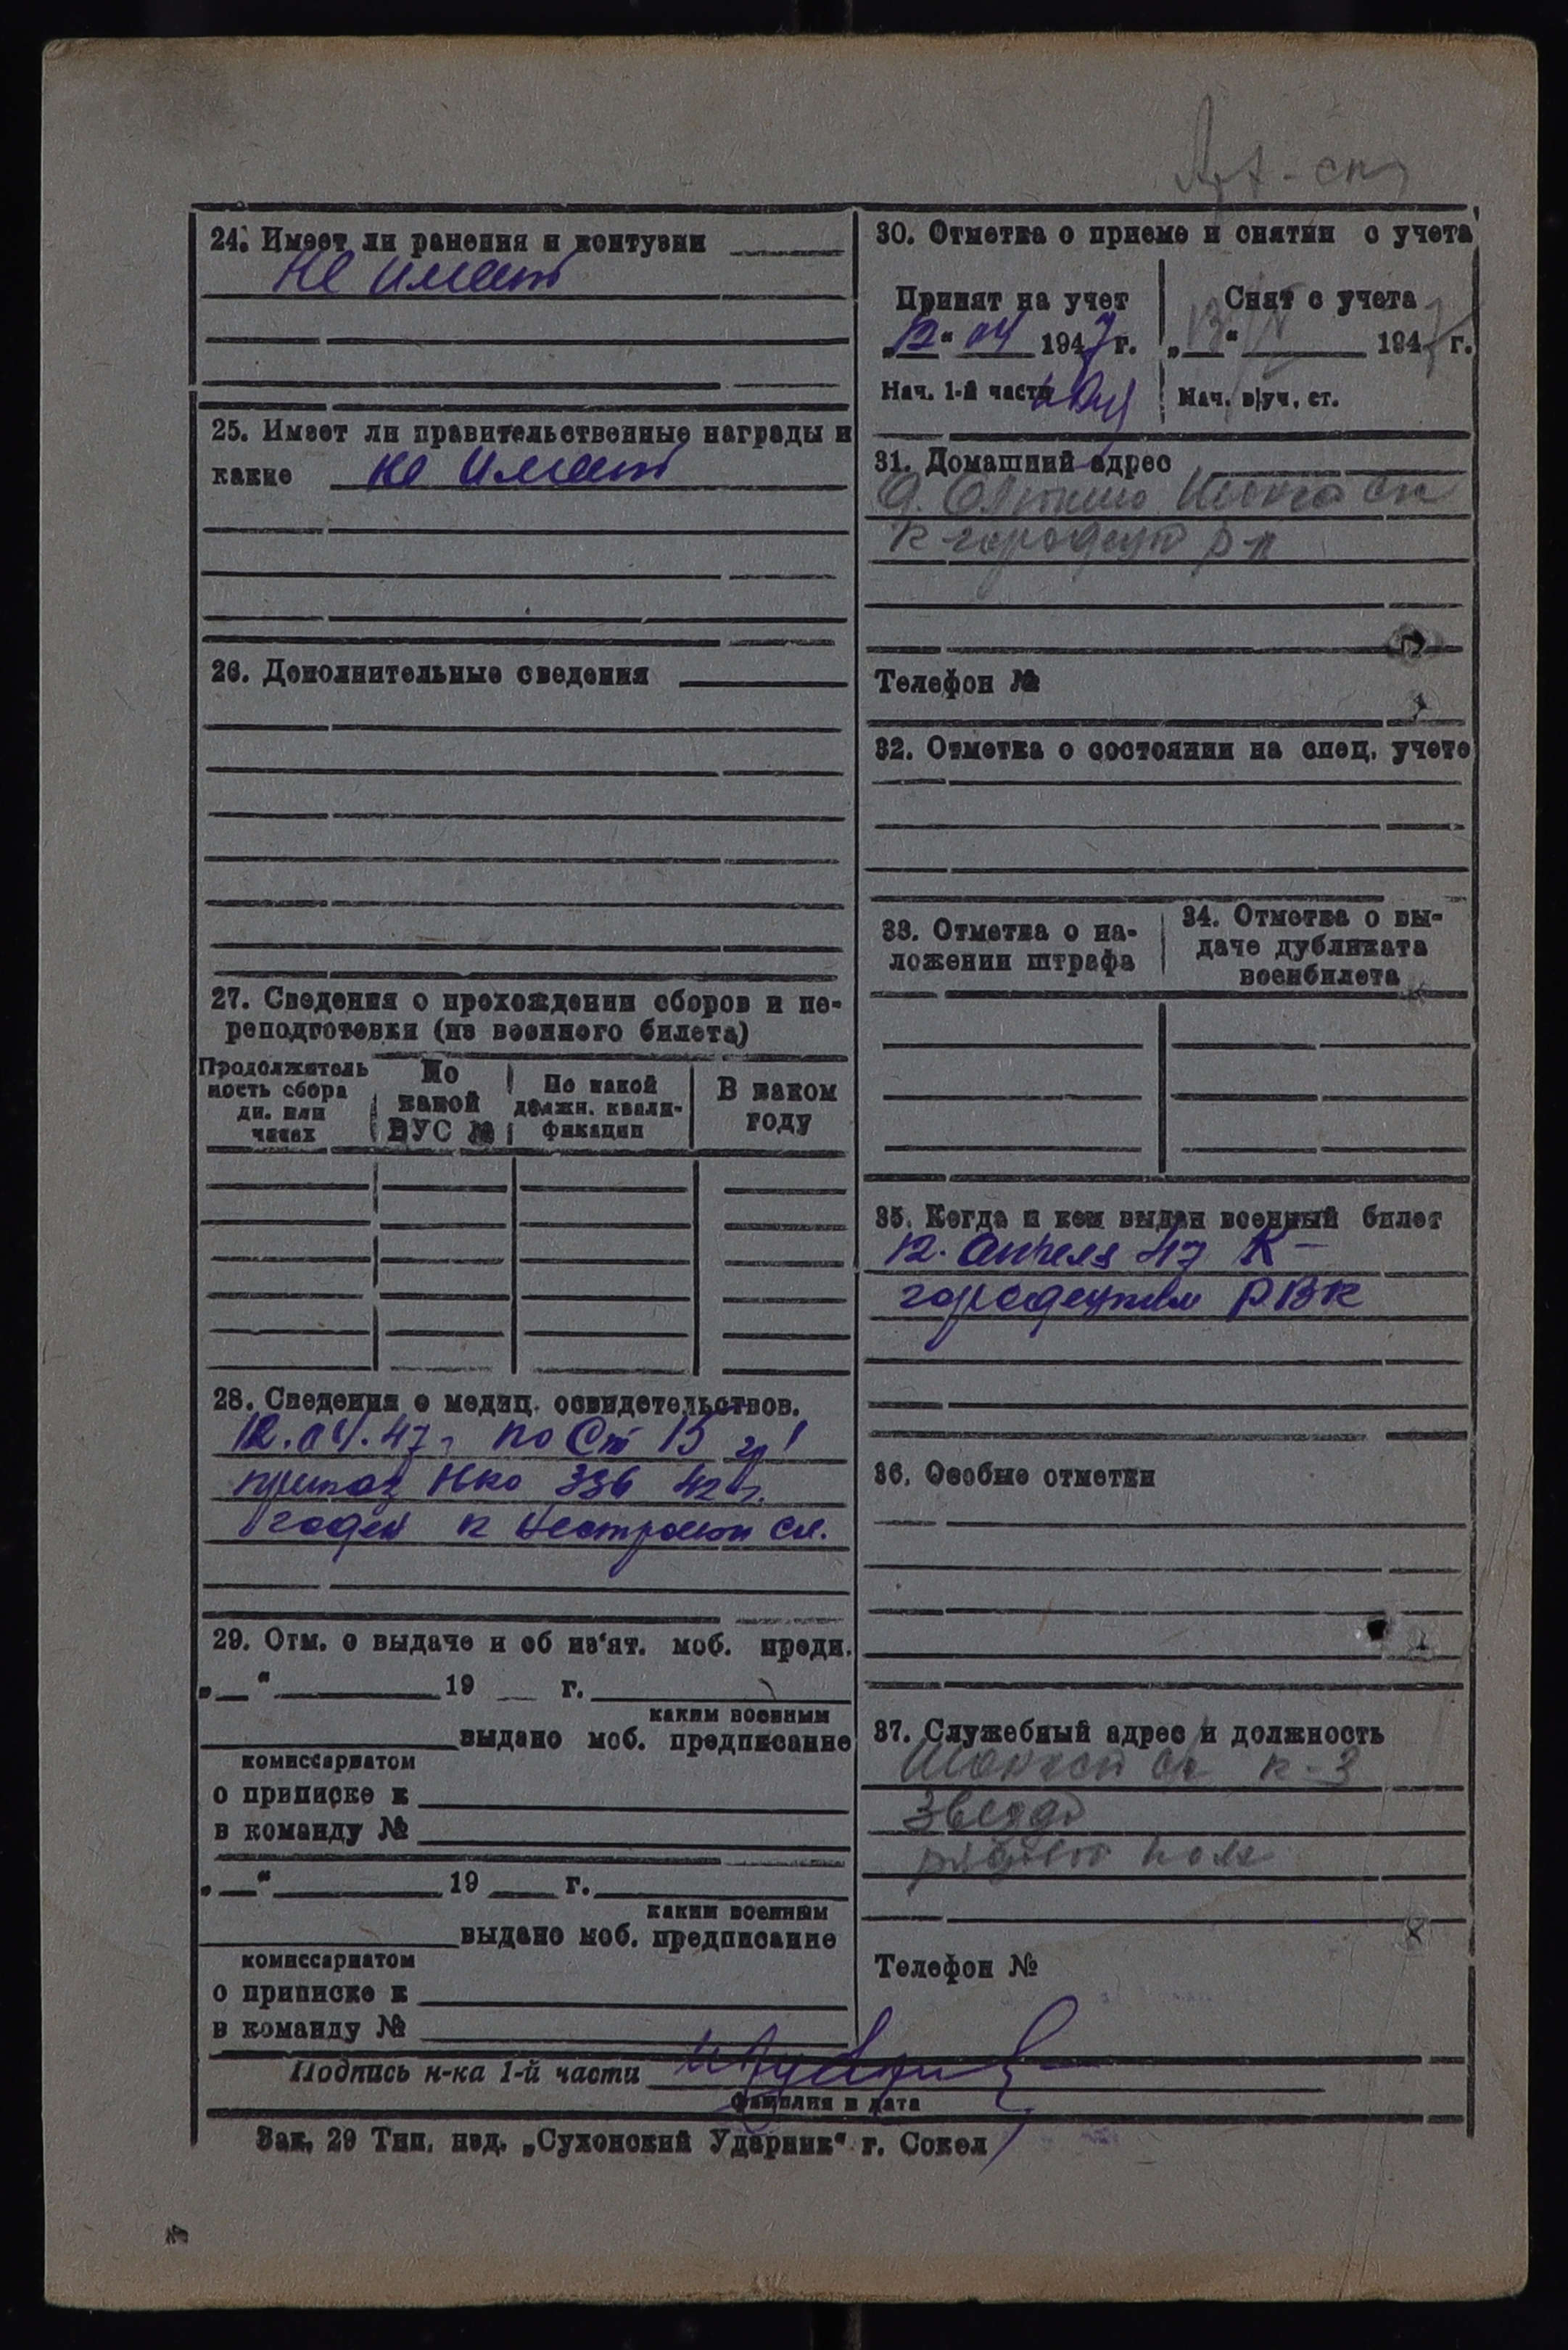 24. Имеет ли ранения и контузии
не имеет
25. Имеет ли правительственные награды и
какие не имеет
26. Дополнительные сведения
27. Сведения о прохождении сборов и пе-
реподготовки (из военного билета)
Продолжитель
ность сбора
дн. или
часах
По
какой
ВУС №
По какой
должн. квали-
фикации
В каком
году
28. Сведения о медиц. освидетельствов.
12.04.47г по Ст 15 гр 1
приказ НКО 336 42 г.
годен к нестроевой сл.
29. Отм. о выдаче и об из'ят. моб. предп.
„ “ 19 г.
каким военным
выдано моб. предписание
комиссариатом
о приписке к
в команду №
„ “ 19 г.
каким военным
выдано моб. предписание
комиссариатом
о приписке к
в команду №
30. Отметка о приеме и снятии с учета
Принят на учет
„12“ 04 1947 г.
Нач. 1-й части
Снят с учета
„ “ 194 г.
Нач. в/уч. ст.
31. Домашний адрес
К-городецк р-н
Телефон №
32. Отметка о состоянии на спец. учете
33. Отметка о на-
ложении штрафа
34. Отметка о вы-
даче дубликата
военбилета
35. Когда и кем выдан военный билет
12. апреля 47 К-
городецким РВК
36. Особые отметки
37. Служебный адрес и должность
к-з
Звезда
Телефон №
Подпись н-ка 1-й части
фамилия и дата
Зак. 29 Тип. изд. „Сухонский Ударник“ г. Сокол